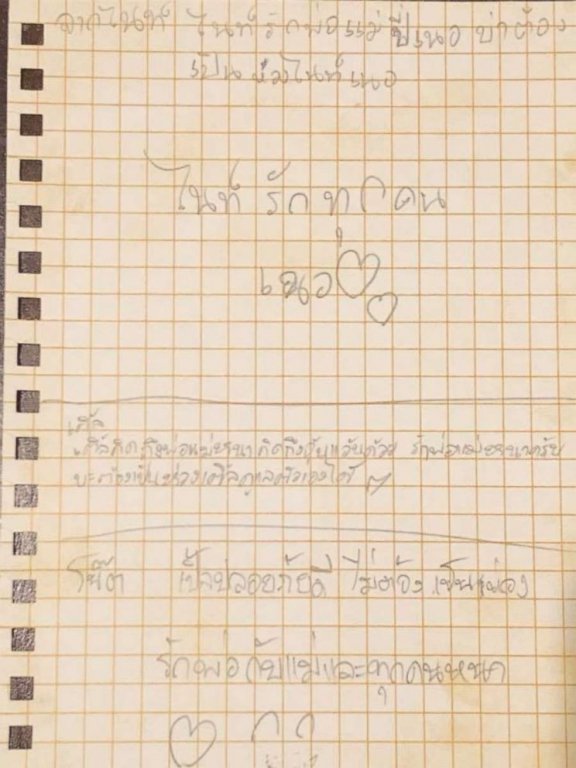 จากไนท์ ไนท์รักพ่อแม่ ปี่เนอ บ่าต้อง
เป็นห่วงไนท์เนอ
ไนท์ รัก ทุกคน
เนอ
เติ้ล
เติ้ลคิดถึงพ่อแม่ รักพ่อแม่
บะต้องเป็นห่วงเติ้ลดูแลตัวเองได้
โน๊ต ปลอดภัยดี ไม่ต้อง เป็นห่วง
รักพ่อกับแม่และทุกคนหนา